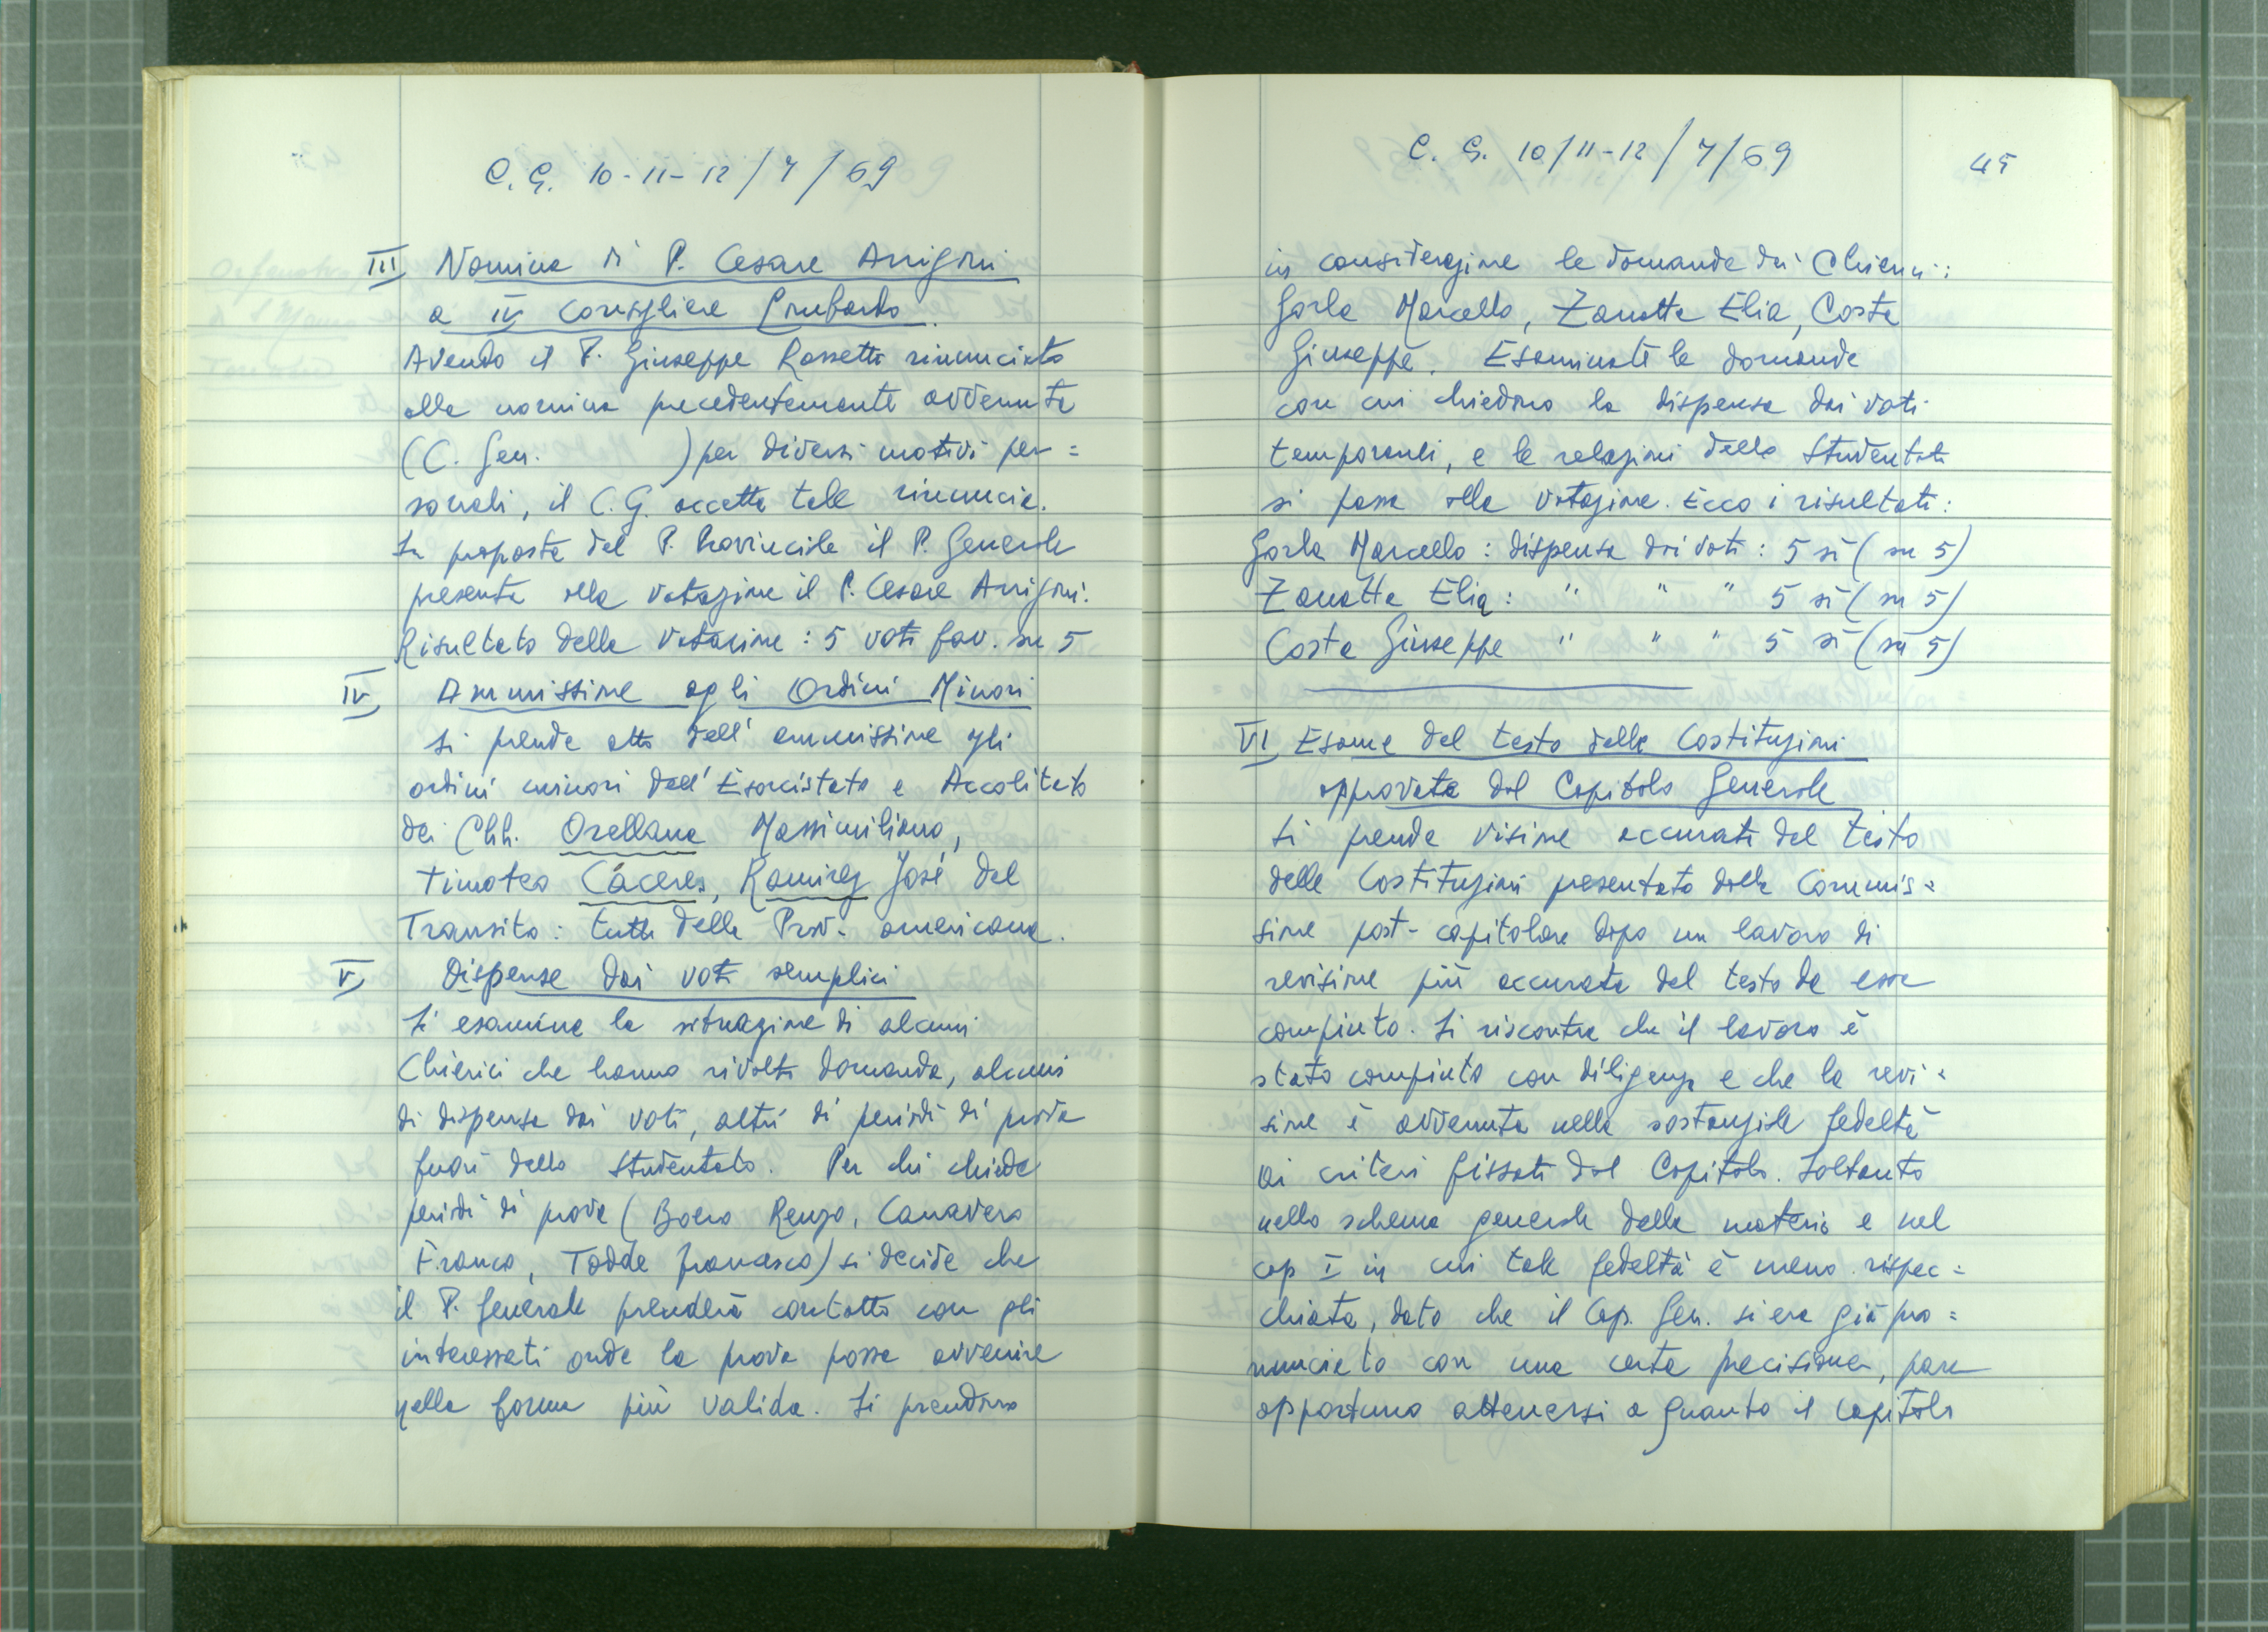 C. G. 10-11-12/7/69
III Nomina di P. Cesare Arrigoni
a IV consigliere Lombardo.
Avendo il P. Giuseppe Rossetti rinunciato
alla nomina precedentemente avvenuta
(C. Gen. ) per diversi motivi per=
sonali, il C.G. accetta tale rinuncia.
Su proposta del P. Provinciale il P. Generale
presenta alla votazione il P. Cesare Arrigoni.
Risultato della votazione: 5 voti fav. su 5
IV Ammissione agli Ordini Minori
Si prende atto dell'ammissione agli
ordini minori dell'Esorcistato e Accolitato
dei Chh. Orellana Massimiliano,
Timoteo Càceres, Ramirez José del
Transito: tutti della Prov. americana.
V Dispense dai voti semplici
Si esamina la situazione di alcuni
Chierici che hanno rivolto domanda, alcuni
di dispensa dai voti, altri di periodi di prova
fuori dello Studentato. Per chi chiede
periodi di prova (Boero Renzo, Canavero
Franco, Todde Francesco) si decide che
il P. Generale prenderà contatto con gli
interessati onde la prova possa avvenire
nella forma più valida. Si prendono
C. G. 10/11-12/7/69
45
in considerazione le domande dei Chierici:
Gorla Marcello, Zanatta Elia, Costa
Giuseppe. Esaminate le domande
con cui chiedono la dispensa dai voti
temporanei, e le relazioni dello Studentato
si passa alla votazione. Ecco i risultati:
Gorla Marcello: dispensa dai voti: 5 sì (su 5)
Zanatta Elia: " " " 5 sì (su 5)
Costa Giuseppe " " " 5 sì (su 5)
VI Esame del testo delle Costituzioni
approvato dal Capitolo Generale
Si prende visione accurata del testo
delle Costituzioni presentato dalla Commis=
sione post-capitolare dopo un lavoro di
revisione più accurata del testo da essa
compiuto. Si riscontra che il lavoro è
stato compiuto con diligenza e che la revi=
sione è avvenuta nella sostanziale fedeltà
ai criteri fissati dal Capitolo. Soltanto
nello schema generale della materia e nel
cap I in cui tale fedeltà è meno rispec=
chiata, dato che il Cap. Gen. si era già pro=
nunciato con una certa precisione, pare
opportuno attenersi a quanto il Capitolo